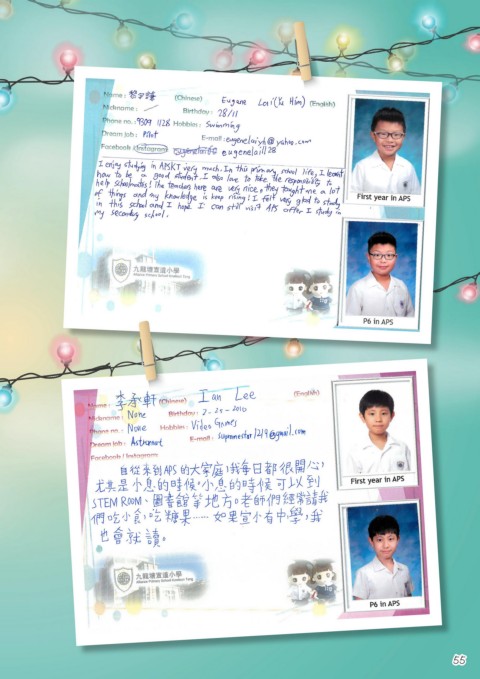 Name: (Chinese) Eugene Lai (Yu Him) (English)
Nickname: / Birthday: 28/11
Phone no.: 9309 1128 Hobbies: Swimming
Dream Job: Pilot E-mail: eugenelaiyh@yahoo.com
Facebook / Instagram: eugenelai1128
I enjoy studying in APSKT very much. In this primary school life, I learnt
how to be a good student. I also love to take the responsibility to
help schoolmates! The teachers here are very nice, they taught me a lot
of things and my knowledge is keep rising! I felt very glad to study
in this school and I hope I can still visit APS after I study in
my secondary school.
First year in APS
九龍塘宣道小學
Alliance Primary School Kowloon Tong
P6 in APS
Name: 李承軒 (Chinese) Ian Lee (English)
Nickname: None Birthday: 2-25-2010
Phone no.: None Hobbies: Video Games
Dream Job: Astronaut E-mail:
Facebook / Instagram:
自從來到APS的大家庭,我每日都很開心,
尤其是小息的時候,小息的時候可以到
STEM ROOM、圖書館等地方。老師們經常請我
們吃小食,吃糖果……如果宣小有中學,我
也會就讀。
First year in APS
九龍塘宣道小學
Alliance Primary School Kowloon Tong
P6 in APS
55